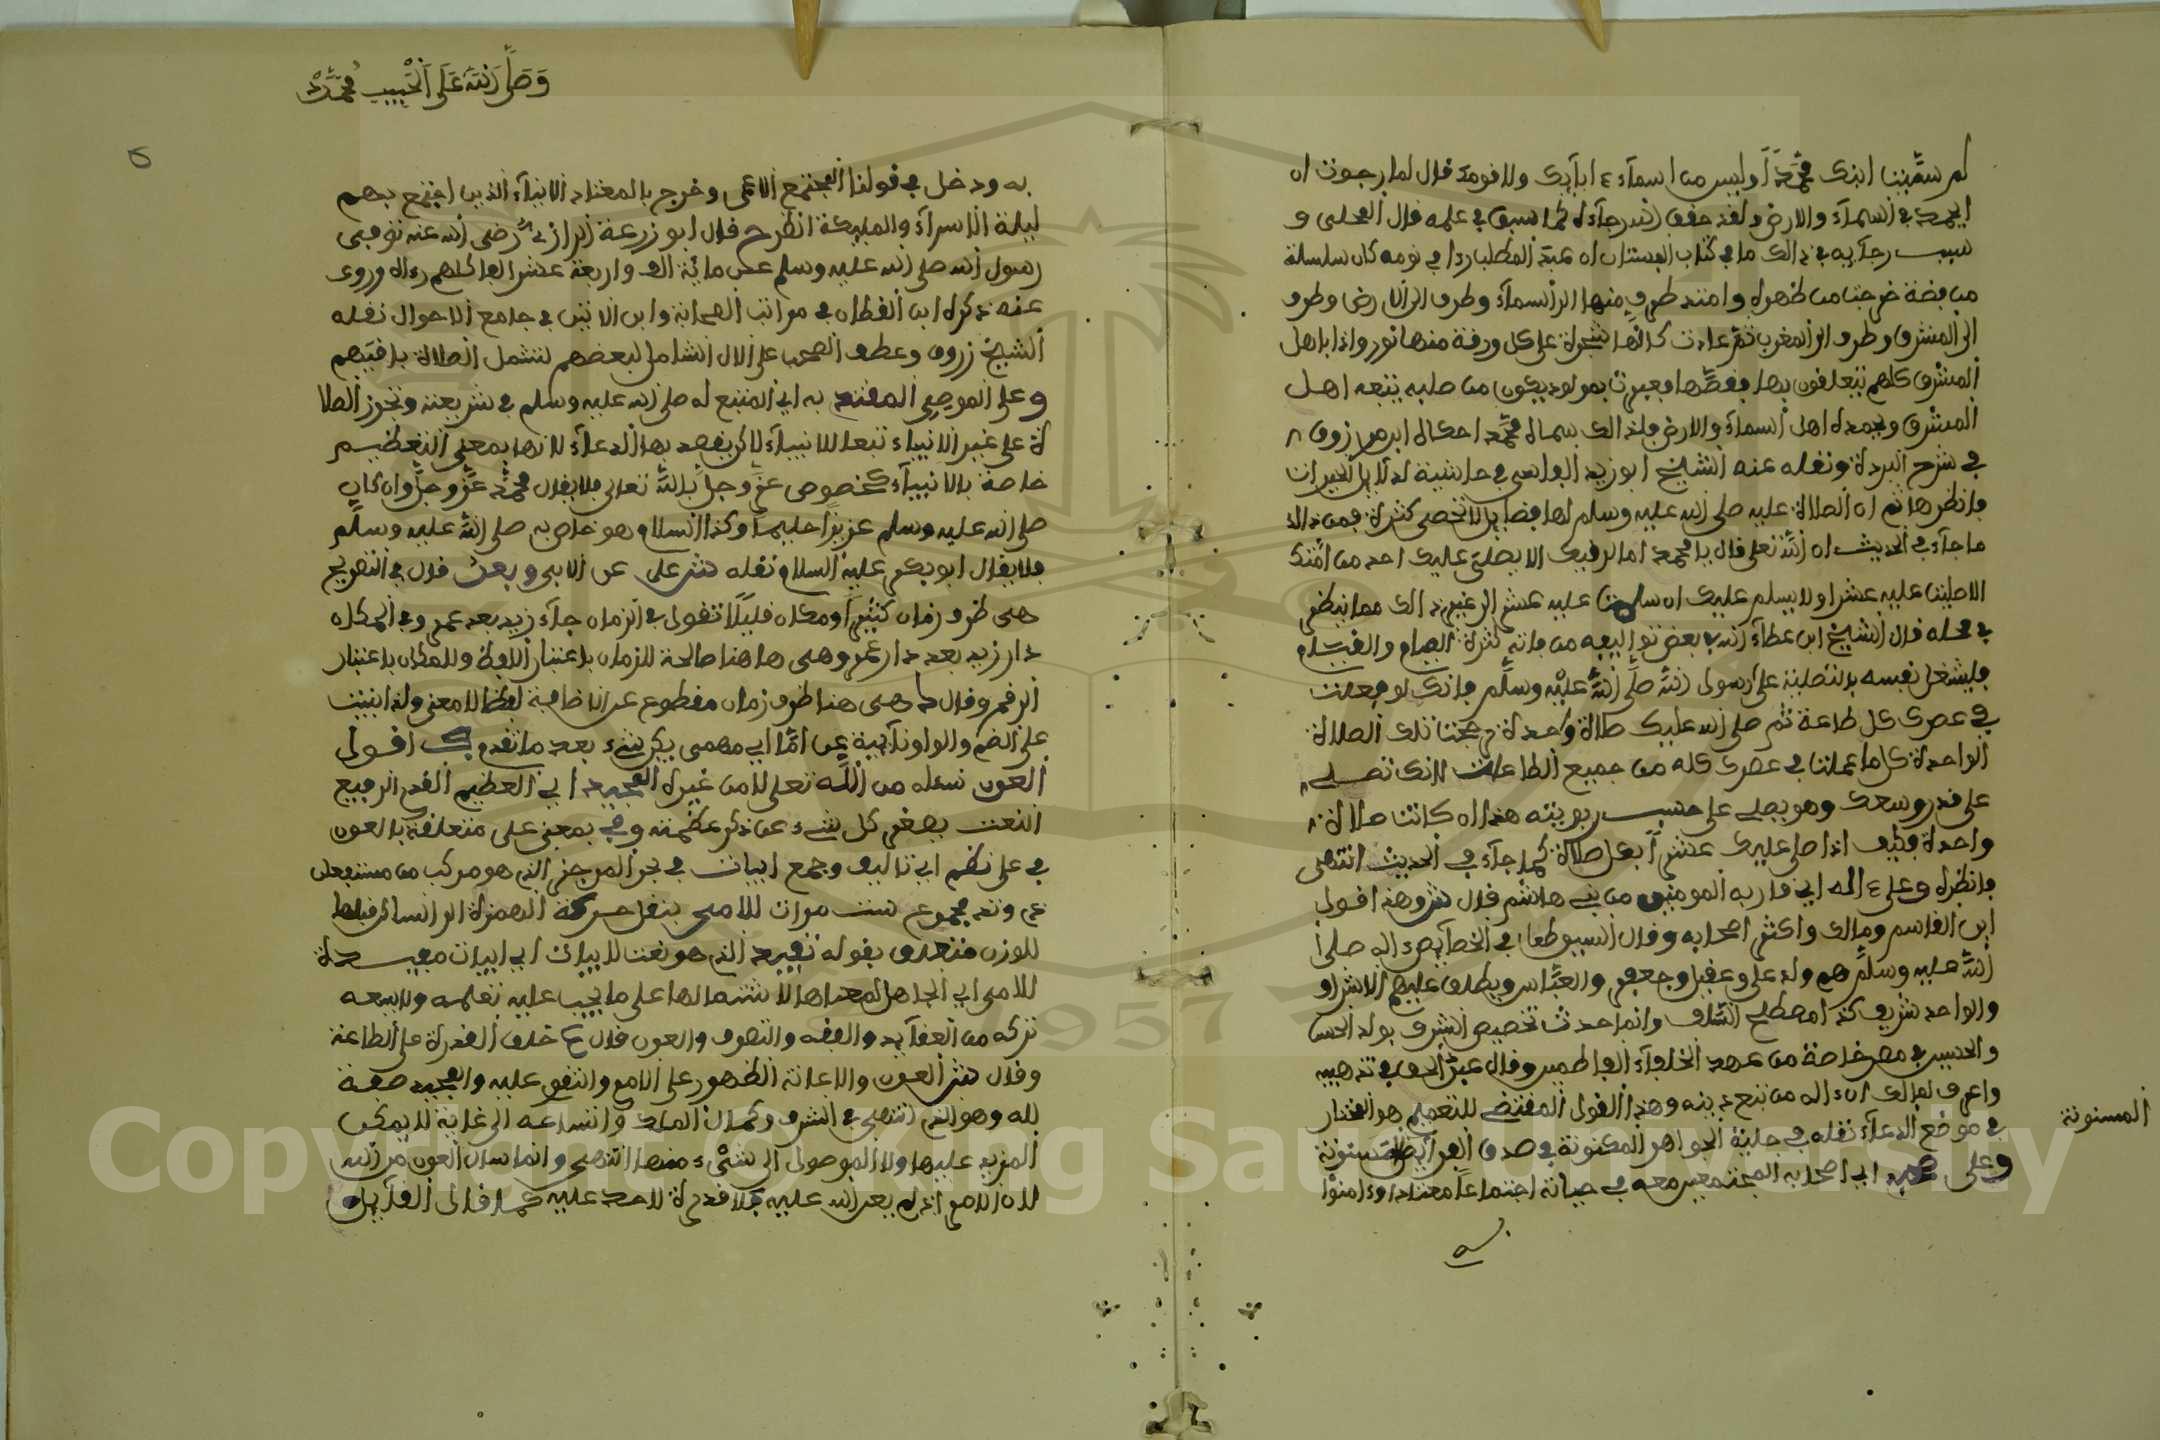 لم سميت ابنك محمدا وليس من اسماء ءابايك ولا قومك قال لما رجوت ان
يحمد في السماء والارض ولقد حقق الله رجاءه كما سبق في علمه قال المحلي و
سبب رجايه في ذالك ما في كتاب البستان ان عبد المطلب رءا في نومه كان سلسلة
من فضة خرجت من ظهره وامتد طرف منها الى السماء وطرف الى الارض وطرف
الى المشرق وطرف الى المغرب ثم عادت كانها شجرة على كل ورقة منها نور واذا باهل
المشرق كلهم يتعلقون بها فقصها فعبرت بمولود يكون من صلبه يتبعه اهل
المشرق ويحمده اهل السماء والارض فلذالك سماه محمد احكاه ابن مرزوق
في شرح البردة ونقله عنه الشيخ ابو زيد الفاسي في حاشية لدلايل الخيرات
فانظرها ثم ان الصلاة عليه صلى الله عليه وسلم لها فضايل لا تحصى كثرة فمن ذالك
ما جاء في الحديث ان الله تعلى قال يا محمد اما يرضيك الا يصلي عليك احد من امتك
الا صليت عليه عشرا ولا يسلم عليك ان سلمت عليه عشر الى غير ذالك مما ينظر
في محله قال الشيخ ابن عطاء الله في بعض تواليفه من فاته كثرة الصيام والقيام
فليشغل نفسه بالتصلية على رسول الله صلى الله عليه وسلم فانك لو فعلت
في عمرك كل طاعة ثم صلى الله عليك صلاة واحدة رجحت تلك الصلاة
الواحدة كل ما عملت في عمرك كله من جميع الطاعات لانك تصلي
على قدر وسعك وهو يصلي على حسب ربوبيته هذا ان كانت صلاة
واحدة فكيف اذا صلى عليك عشرا بكل صلاة كما جاء في الحديث انتهى
فانظره وعلى ءاله اي اقاربه المومنين من بني هاشم قال ش وهذا قول
ابن القاسم ومالك واكثر اصحابه وقال السيوطي في الخصايص ءاله صلى
الله عليه وسلم هم ولد علي وعقيل وجعفر والعباس ويطلق عليهم الاشراف
والواحد شريف كذا مصطلح السلف وانما حدث تخصيص الشرف بولد الحسن
والحسين في مصر خاصة من عهد الخلفاء الفاطميين وقال عبد الحق في تهذيبه
واعرف لمالك ان ءاله من تبع دينه وهذا القول المقتضي للتعميم هو المختار
في موضع الدعاء نقله في حلية الجواهر المكنونة في صدف الفرايض المسنونة
المسنونة
وعلى صحبه اي اصحابه المجتمعين معه في حياته اجتماعا معتادا وءامنوا
به
وصلى الله على الحبيب محمد
٥
به ودخل في قولنا المجتمع الاعمى وخرج بالمعتاد الانبياء الذين اجتمع بهم
ليلة الاسراء والمليكة انظر ح قال ابو زرعة الرازي رضي الله عنه توفي
رسول الله صلى الله عليه وسلم عن مائة الف واربعة عشر الفا كلهم رءاه وروى
عنه ذكره ابن القطان في مراتب الصحابة وابن الاثير في جامع الاحوال نقله
الشيخ زروق وعطف الصحب على الال الشامل لبعضهم لتشمل الصلاة باقيهم
وعلى الموصي المقتد به اي المتبع له صلى الله عليه وسلم في شريعته وتجوز الصلا
ة على غير الانبياء تبعا للانبياء لاكن يقصد بها الدعاء لانها بمعنى التعظيم
خاصة بالانبياء كخصوص عز وجل بالله تعالى فلا يقال محمد عز وجل وان كان
صلى الله عليه وسلم عزيزا جليلا وكذا السلام هو خاص به صلى الله عليه وسلم
فلا يقال ابو بكر عليه السلام نقله ش على عن الابي وبعد قال في التصريح
هي ظرف زمان كثيرا ومكان قليلا تقول في الزمان جاء زيد بعد عمر وفي المكان
دار زيد بعد دار عمر وهي هاهنا صالحة للزمان باعتبار اللفظ وللمكان باعتبار
الرقم وقال د هي هنا ظرف زمان مقطوع عن الاضافة لفظا لا معنى ولذا بنيت
على الضم والواو نايبة عن اما اي مهمى يكن شيء بعد ما تقدم فاقول
العون نسئله من الله تعلى لا من غيره المجيد اي العظيم القدر الرفيع
النعت يصغر كل شيء عن ذكر عظمته وفي بمعنى على متعلقة بالعون
في على نظم اي تاليف وجمع ابيات في بحر الرجز الذي هو مركب من مستفعلن
عروضه مجموع ست مرات للامي بنقل حركة الهمزة الى الساكن قبلها
للوزن متعلق بقوله تفيد الذي هو نعت للابيات اي ابيات مفيدة
للامي اي الجاهل لمعناها لاشتمالها على ما يجب عليه تعلمه ولا يسعه
تركه من العقايد والفقه والتصوف والعون قال ع خلق القدرة على الطاعة
وقال ش العون والاعانة الظهور على الامر والتقوي عليه والمجيد صفة
لله وهو الذي انتهى في الشرف وكمال الملك واتساعه الى غاية لا يمكن
المزيد عليها ولا الوصول الى شيء منها انتهى وانما سال العون من الله
لان الامر اذا لم يعن الله عليه فلا قدرة لاحد عليه كما قال القايل